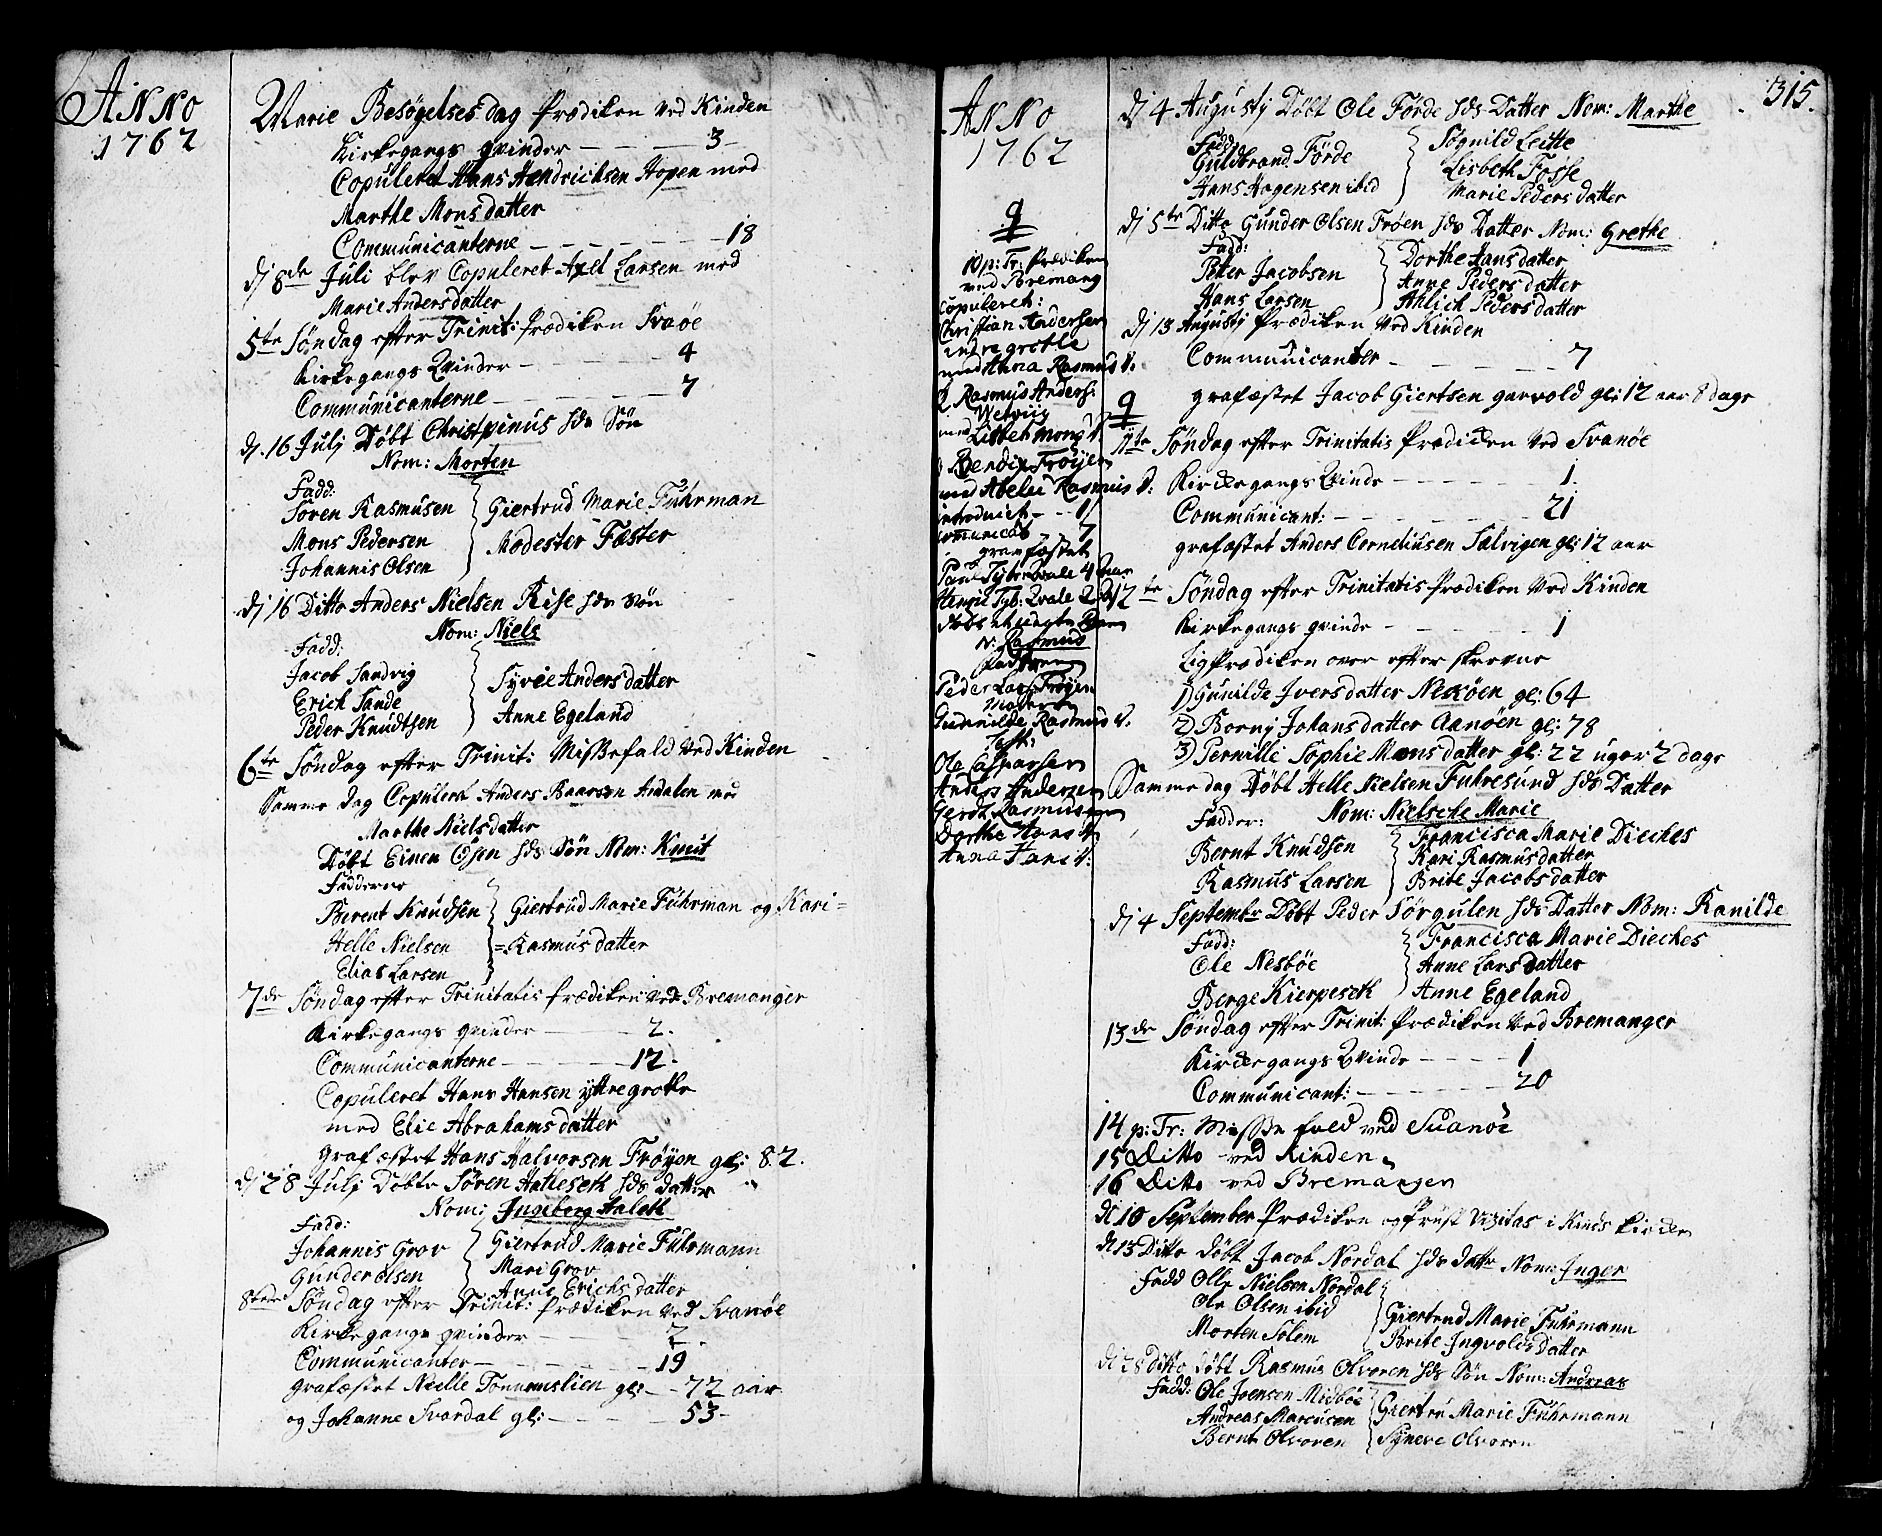 ANNO
1762
Marie Besøgelses dag Prædiken ved Kinden
Kirkegangs qvinder - - - - 3 -
Copuleret Hans Hendrichsen Hopen med
Marthe Monsdatter
Communicanterne - - - - - - 18
dj 8de Juli blev Copuleret Axel Larsen med
Marie Andersdatter
5te Søndag efter Trinit: Prædiken Svaøe
Kirkegangs Qvinder - - - - 4
Communicanterne - - - - - 7
dj. 16 Julj Døbt Christpinus hds Søn
Nom: Morten
Fadd:
Søren Rasmusen } Giertrud Marie Fuhrman
Mons Pedersen } Modester Fæster
Johannis Olsen
dj 16 Ditto Anders Nielsen Rise hds Søn
Nom: Niels
Fadd:
Jacob Sandvig } Syvie Andersdatter
Erich Sande
Peder Knudtsen } Anne Egeland
6te Søndag efter Trinit: Missefald Ved Kinden
Samme dag Copulert Anders Baarsen Ardalen med
Marthe Nielsdatter
Døbt Einen Olsen hds Søn Nom: Knut
Fadderne
Berent Knudsen } Giertrud Marie Fuhrman og Kari=
Helle Nielsen } =Rasmusdatter
Elias Larsen
7de Søndag efter Trinitatis Prædiken Ved Bremanger
Kirkegangs qvinder - - - 2.
Communicanterne - - - - 12.
Copuleret Hans Hansen yttregrotle
med Elie Abrahamsdatter
Grafæstet Hans Halvorsen Frøyen gl: 82.
dj 28 Julj Døbte Søren Hatleseth hds datter
Nom: Ingeborg Haleth
Fadd:
Johannis Grov } Giertrud Marie Fuhrmann
Gunder Olsen } Mari Grov
Anne Erichsdatter
8tende Søndag efter Trinit: Prædiken Ved Svanøe
Kirkegangs qvinder - - - - 2 -
Communicanter - - - - - 19
Grafæstet Nielle Tonnemslien gl: - 72 aar
og Johanne Svardal gl: - - - - 53 -
ANNO
1762
9
10 p: Tr: Prædiken
ved Bremang
Copuleret:
Christian Andersen
indregrotle
med Anna Rasmus D.
2. Rasmus Anders:
Wetvig
med Lisbet Mons D
Bendix Frøyen
med Abelu Rasmus D:
introduict - - 1
communicat 7
gravfæstet
Paul Tyber Qvale 4 aar
N: Rasmus
Peder Lars: Frøyen
Moderen
Gunnilde Rasmus D.
Test:
Ole Casparsen
Anders Andersen
Gerdt Rasmussen
Dorthe Hans D
Anna Hans D:
315.
dj 4 Augustj Døbt Ole Førde hds Datter Nom: Marthe
Fadd:
Guldbrand Førde } Søgnild Leitte
Hans Hagensen ibid } Lisbeth Fosse
Marie Pedersdatter
dj 5te Ditto Gunder Olsen Frøen hds Datter Nom: Grethe
Fadd:
Peter Jacobsen } Dorthe Hansdatter
Anne Pedersdatter
Hans Larsen } Ahlich Pedersdatter
dj 13 Augustj Prædiken Ved Kinden
Communicanter - - - - - 7
9
Grafæstet Jacob Giertsen garvold gl: 12 aar 8 dage
11te Søndag efter Trinitatis Prædicken Ved Svanøe
Kirckegangs Qvinde - - - - - 1.
Communicant: - - - - - - 21
grafæstet Anders Corneliusen Sælvigen gl: 12 aar
12te Søndag efter Trinitatis Prædiken Ved Kinden
Kirkegangs qvinde - - - - - 1
Ligprædiken over efter skrevne
1) Gunilde Iversdatter Nekøen gl: 64
2) Borny Johansdatter Aanøen gl: 78
3) Pernille Sophie Monsdatter gl: 22 uger 2 dage
Samme dag Døbt Helle Nielsen Fuhresund hds Datter
Fadder: Nom: Nielsche Marie
Bernt Knudsen } Francisca Marie Dieches
Kari Rasmusdatter
Rasmus Larsen } Brite Jacobsdatter
dj 4 Septembr Døbt Peder Sørgulen hds Datter Nom: Ranilde
Fadd:
Ole Nesbøe } Francisca Marie Dieches
Anne Larsdatter
Berge Kierpeseth } Anne Egeland
13de Søndag efter Trinit: Prædiken Ved Bremanger
Kirckegangs Qvinde - - - - 1
Communicant: - - - - - 20
14 p: Tr: Messe fald ved Suanøe
15 Ditto ved Kinden
16 Ditto ved Bremangen
dj 10 September Prædiken og Prust Visitas i Kinds kircke
dj 13 Ditto Døbt Jacob Nordal hds datter Nom: Inger
Fadd Olle Nielsen Nordal
Ole Olsen ibid } Giertrud Marie Fuhrmann
Morten Solem } Brite Ingvolds datter
dj 28 Ditto Døbt Rasmus Olvoren hds Søn Nom: Andreas
Fadd: Ole Joensen Midbøe
Andreas Marcusen } Giertru Marie Fuhrmann
Bernt Olvoren } Syneve Olvoren